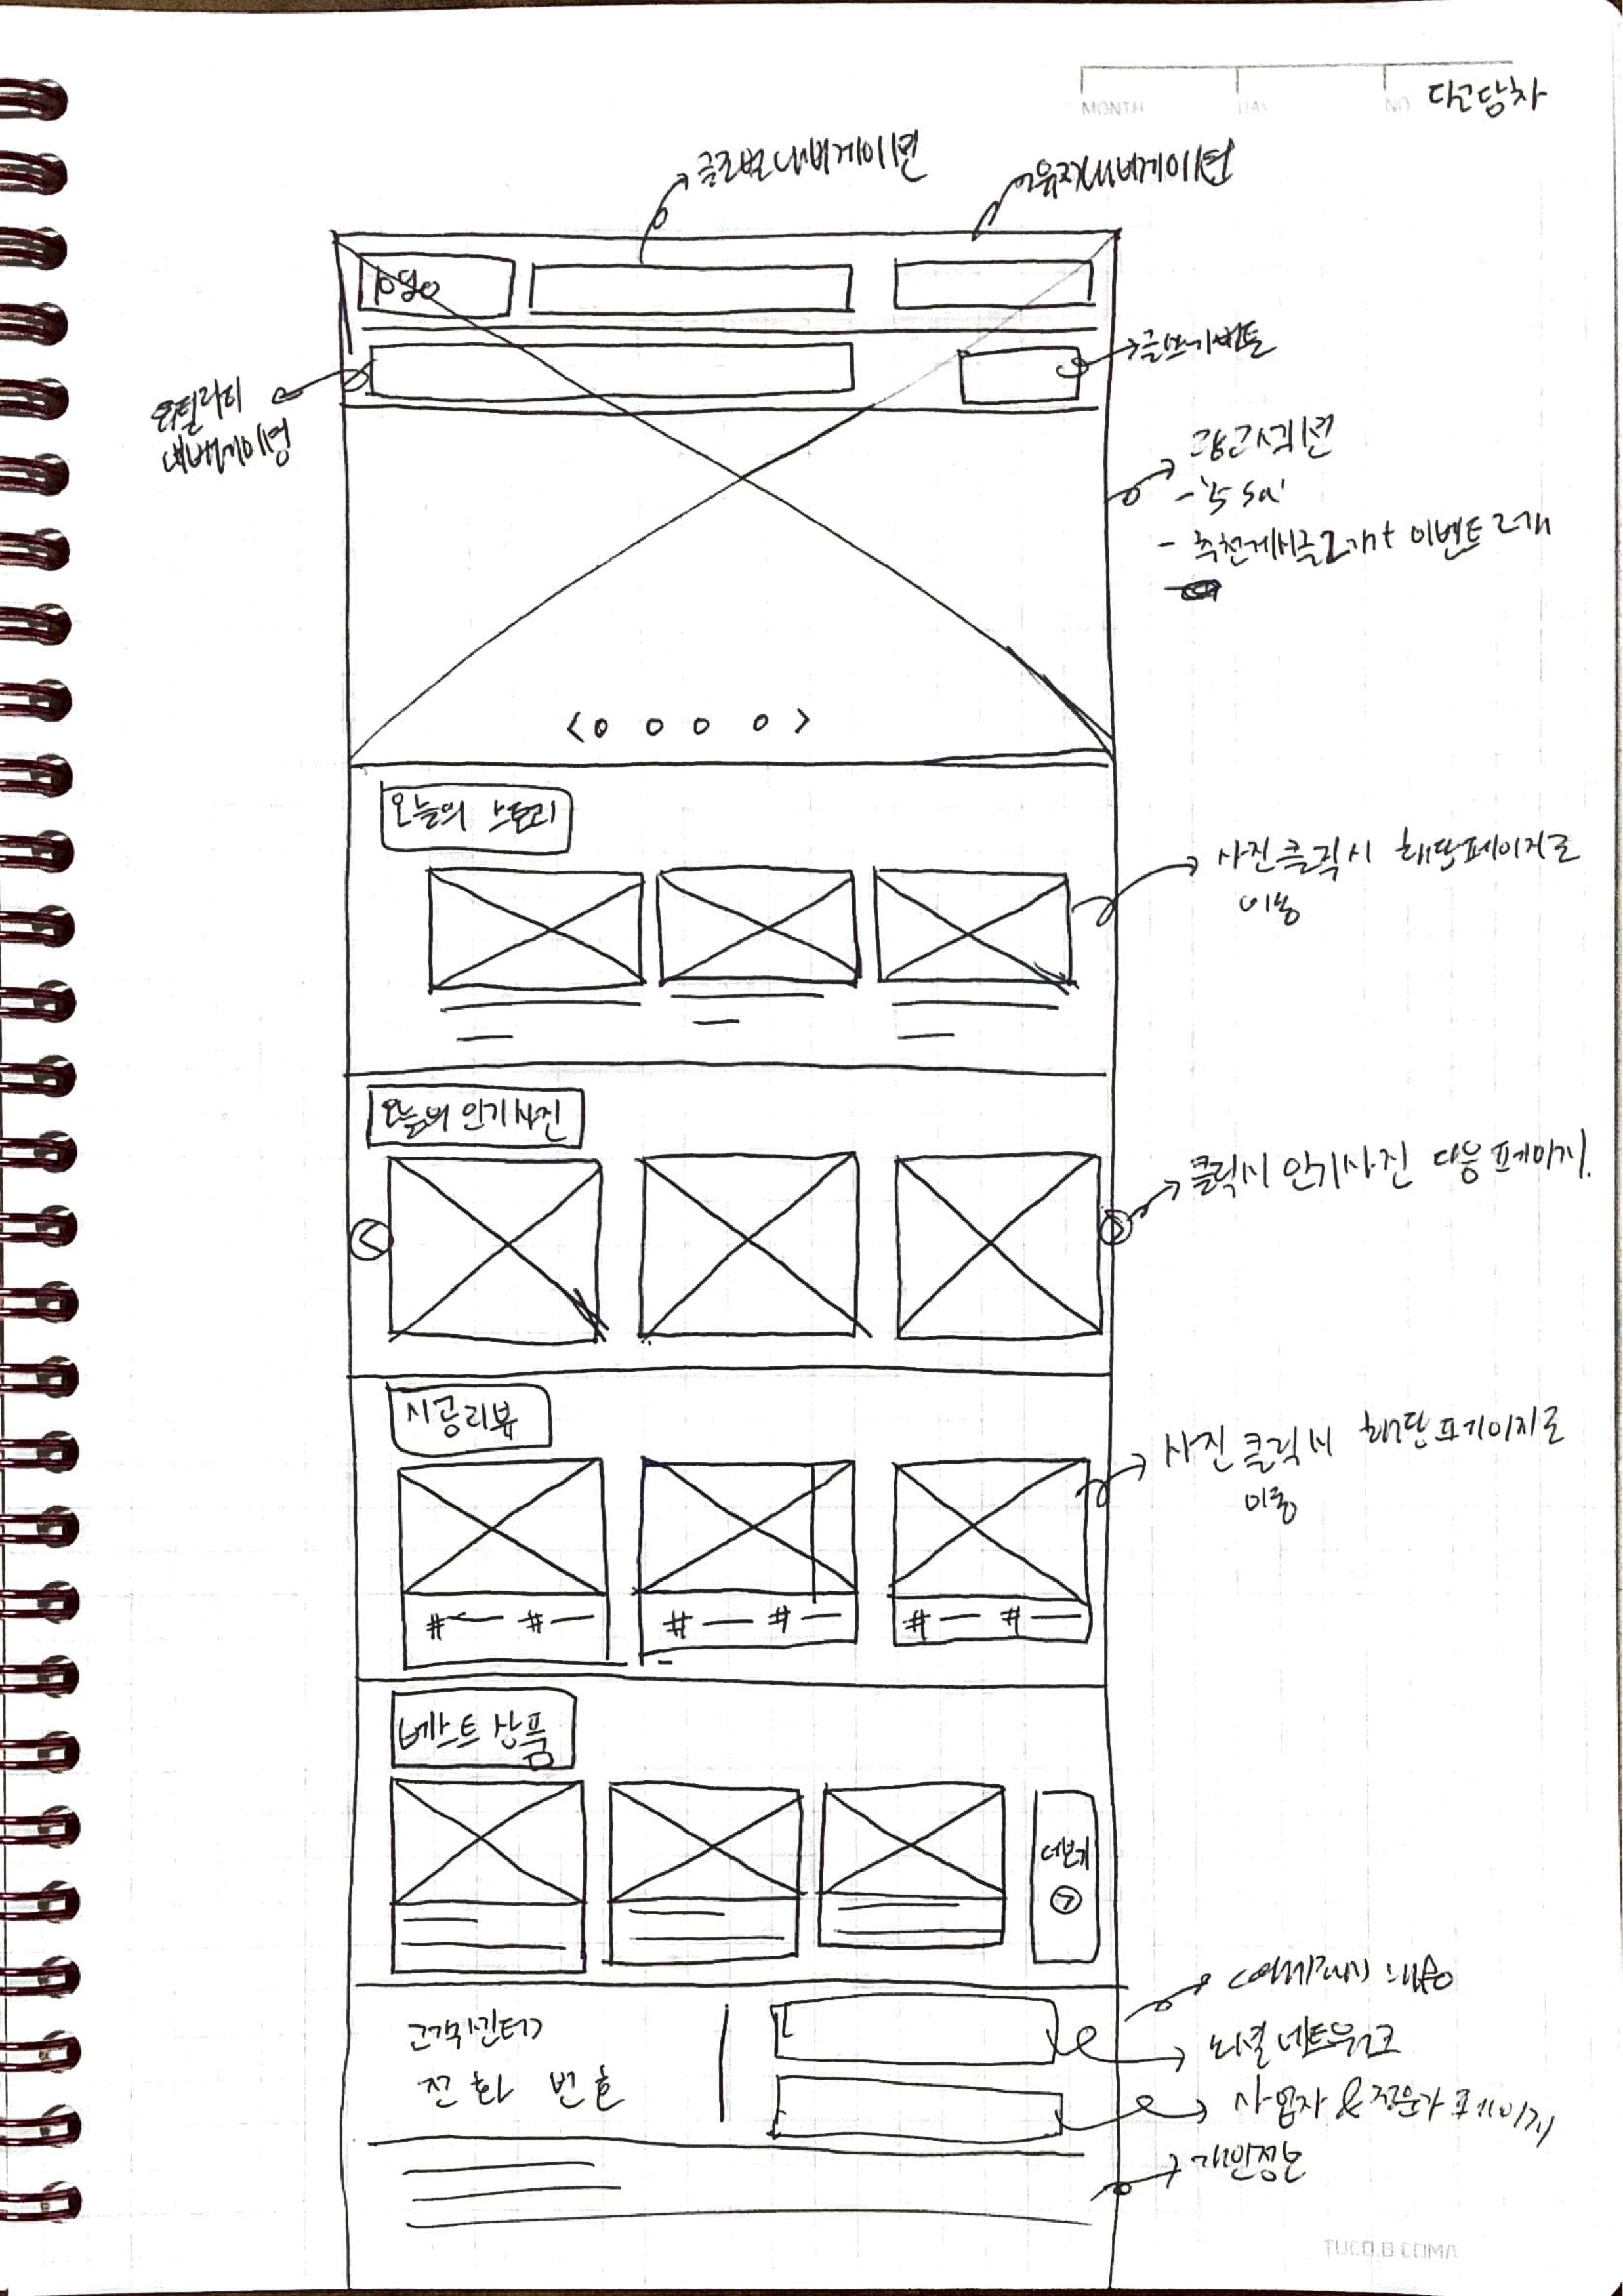 MONTH DAY NO
글로벌 내비게이션
유저내비게이션
logo
글쓰기버튼
유틸리티
내비게이션
광고섹션
- 추천게시글 2개+ 이벤트 2개
오늘의 스토리
사진 클릭시 해당페이지로
이동
오늘의 인기사진
클릭시 인기사진 다음 페이지.
시공리뷰
사진 클릭시 해당 페이지로
이동
# #
# #
# #
베스트 상품
더보기
고객센터
전화 번호
네트워크
사업자 & 전문가 페이지
개인정보
TUCO.B COMA